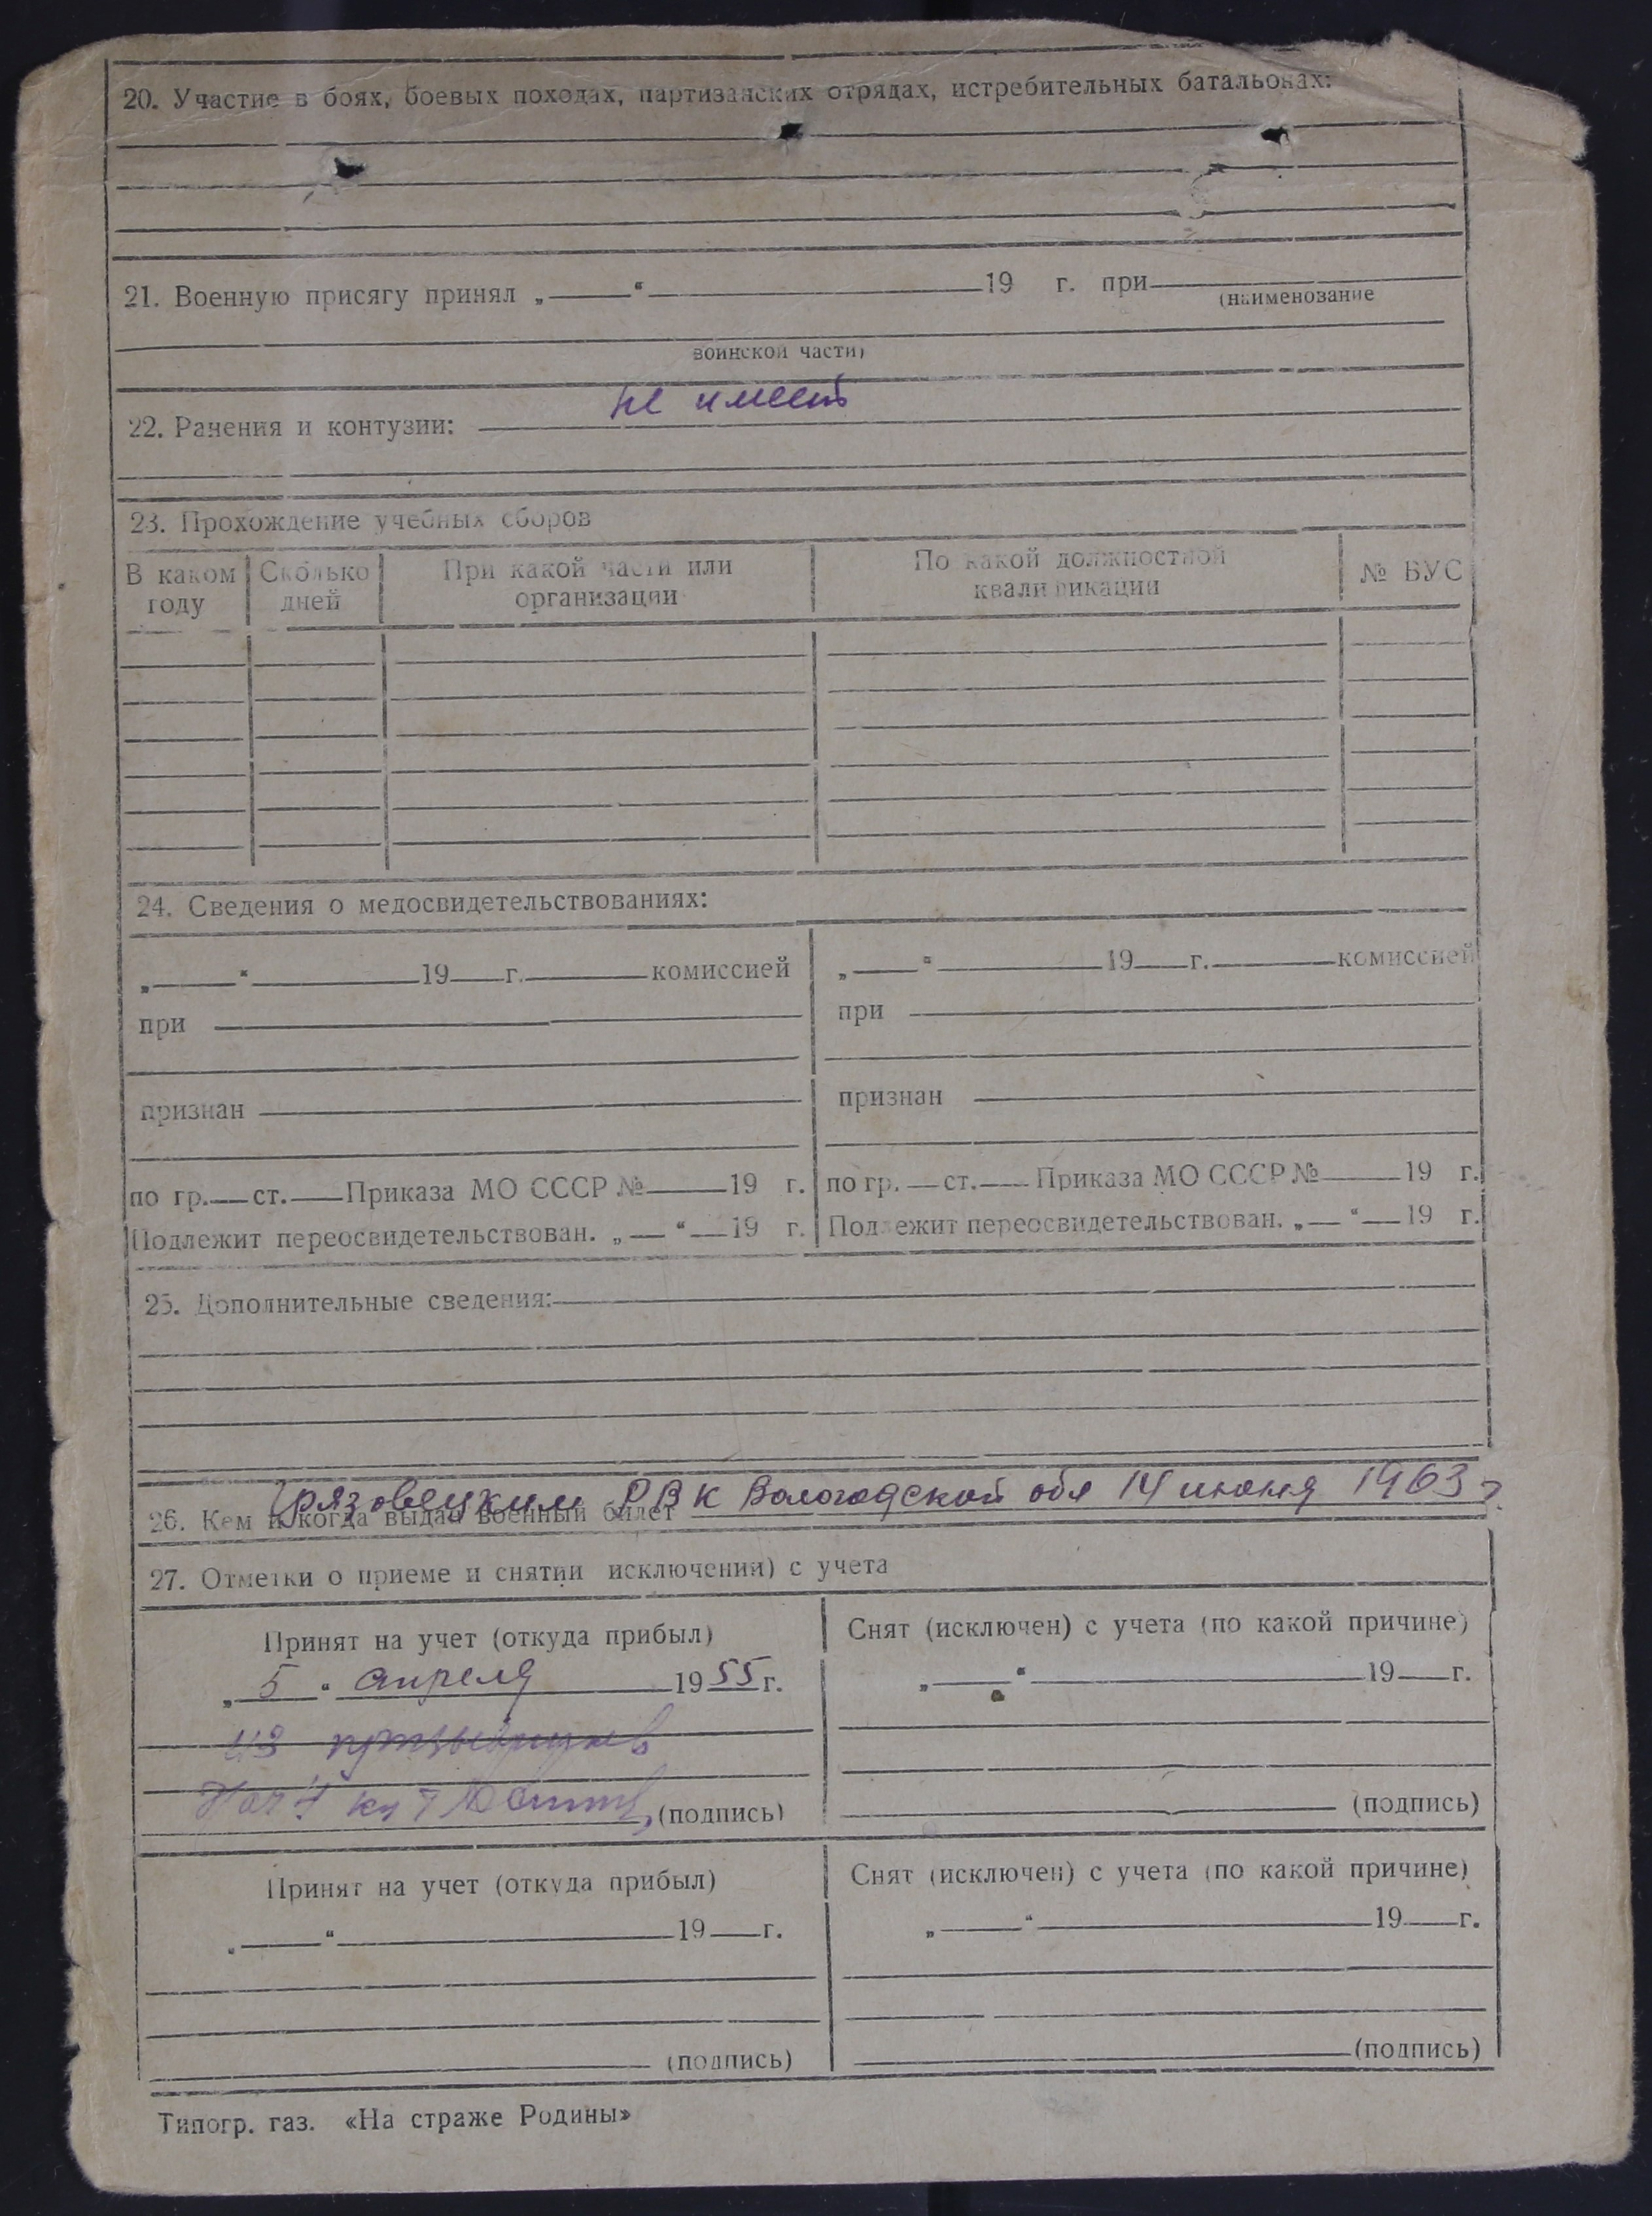 20. Участие в боях, боевых походах, партизанских отрядах, истребительных батальонах:
21. Военную присягу принял „ “ 19 г. при
(наименование
воинской части)
не имеет
22. Ранения и контузии:
23. Прохождение учебных сборов
В каком году Сколько дней При какой части или организации По какой должностной квалификации № ВУС
24. Сведения о медосвидетельствованиях:
„ “ 19 г. комиссией „ “ 19 г. комиссией
при при
признан признан
по гр. ст. Приказа МО СССР № 19 г. по гр. ст. Приказа МО СССР № 19 г.
Подлежит переосвидетельствован. „ “ 19 г. Подлежит переосвидетельствован. „ “ 19 г.
25. Дополнительные сведения:
Грязовецким РВК Вологодской обл 14 июня 1963 г.
26. Кем и когда выдан военный билет
27. Отметки о приеме и снятии исключении) с учета
Принят на учет (откуда прибыл) Снят (исключен) с учета (по какой причине)
„ 5 “ апреля 1955 г. „ “ 19 г.
из
(подпись) (подпись)
Принят на учет (откуда прибыл) Снят (исключен) с учета (по какой причине)
„ “ 19 г. „ “ 19 г.
(подпись) (подпись)
Типогр. газ. «На страже Родины»